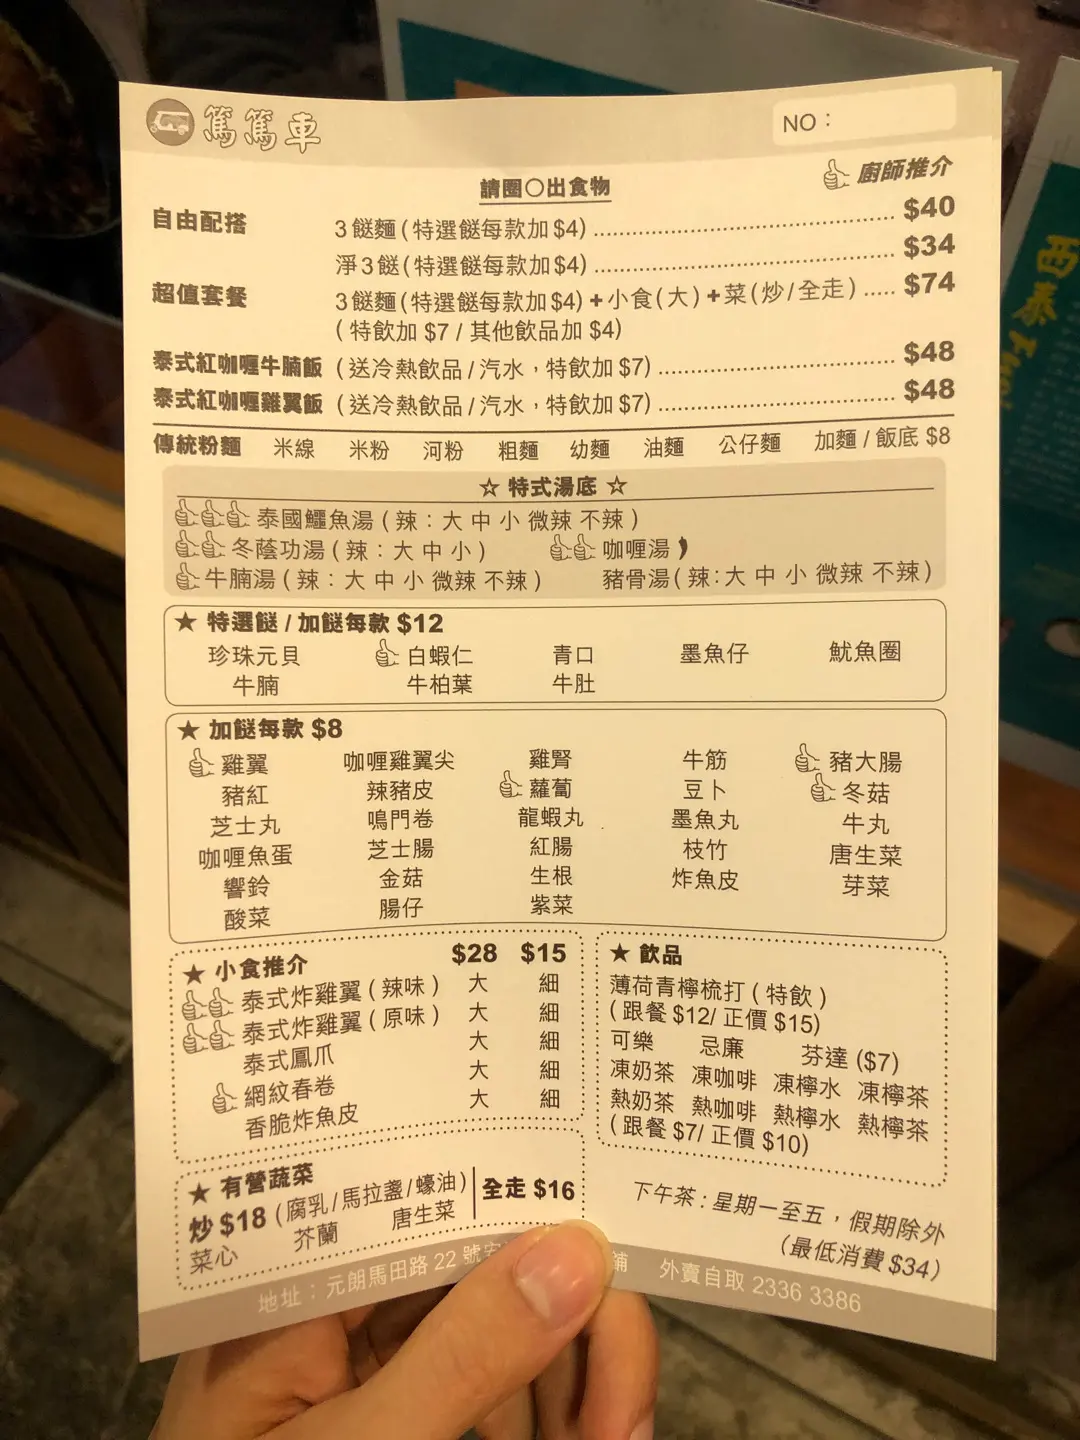 篤篤車
NO：
請圈○出食物
廚師推介
自由配搭 3餸麵(特選餸每款加$4) $40
淨3餸(特選餸每款加$4) $34
超值套餐 3餸麵(特選餸每款加$4)+小食(大)+菜(炒/全走) $74
(特飲加$7/其他飲品加$4)
泰式紅咖喱牛腩飯 (送冷熱飲品/汽水，特飲加$7) $48
泰式紅咖喱雞翼飯 (送冷熱飲品/汽水，特飲加$7) $48
傳統粉麵 米線 米粉 河粉 粗麵 幼麵 油麵 公仔麵 加麵/飯底 $8
☆ 特式湯底 ☆
泰國鱷魚湯(辣：大 中 小 微辣 不辣)
冬蔭功湯(辣：大 中 小) 咖喱湯
牛腩湯(辣：大 中 小 微辣 不辣) 豬骨湯(辣：大 中 小 微辣 不辣)
★ 特選餸/加餸每款 $12
珍珠元貝 白蝦仁 青口 墨魚仔 魷魚圈
牛腩 牛柏葉 牛肚
★ 加餸每款 $8
雞翼 咖喱雞翼尖 雞腎 牛筋 豬大腸
豬紅 辣豬皮 蘿蔔 豆卜 冬菇
芝士丸 鳴門卷 龍蝦丸 墨魚丸 牛丸
咖喱魚蛋 芝士腸 紅腸 枝竹 唐生菜
響鈴 金菇 生根 炸魚皮 芽菜
酸菜 腸仔 紫菜
★ 小食推介 $28 $15
泰式炸雞翼(辣味) 大 細
泰式炸雞翼(原味) 大 細
泰式鳳爪 大 細
網紋春卷 大 細
香脆炸魚皮 大 細
★ 飲品
薄荷青檸梳打(特飲)
(跟餐 $12/ 正價 $15)
可樂 忌廉 芬達 ($7)
凍奶茶 凍咖啡 凍檸水 凍檸茶
熱奶茶 熱咖啡 熱檸水 熱檸茶
(跟餐 $7/ 正價 $10)
★ 有營蔬菜
炒 $18 (腐乳/馬拉盞/蠔油) 全走 $16
菜心 芥蘭 唐生菜
下午茶：星期一至五，假期除外
(最低消費 $34)
地址：元朗馬田路 22 號 舖 外賣自取 2336 3386